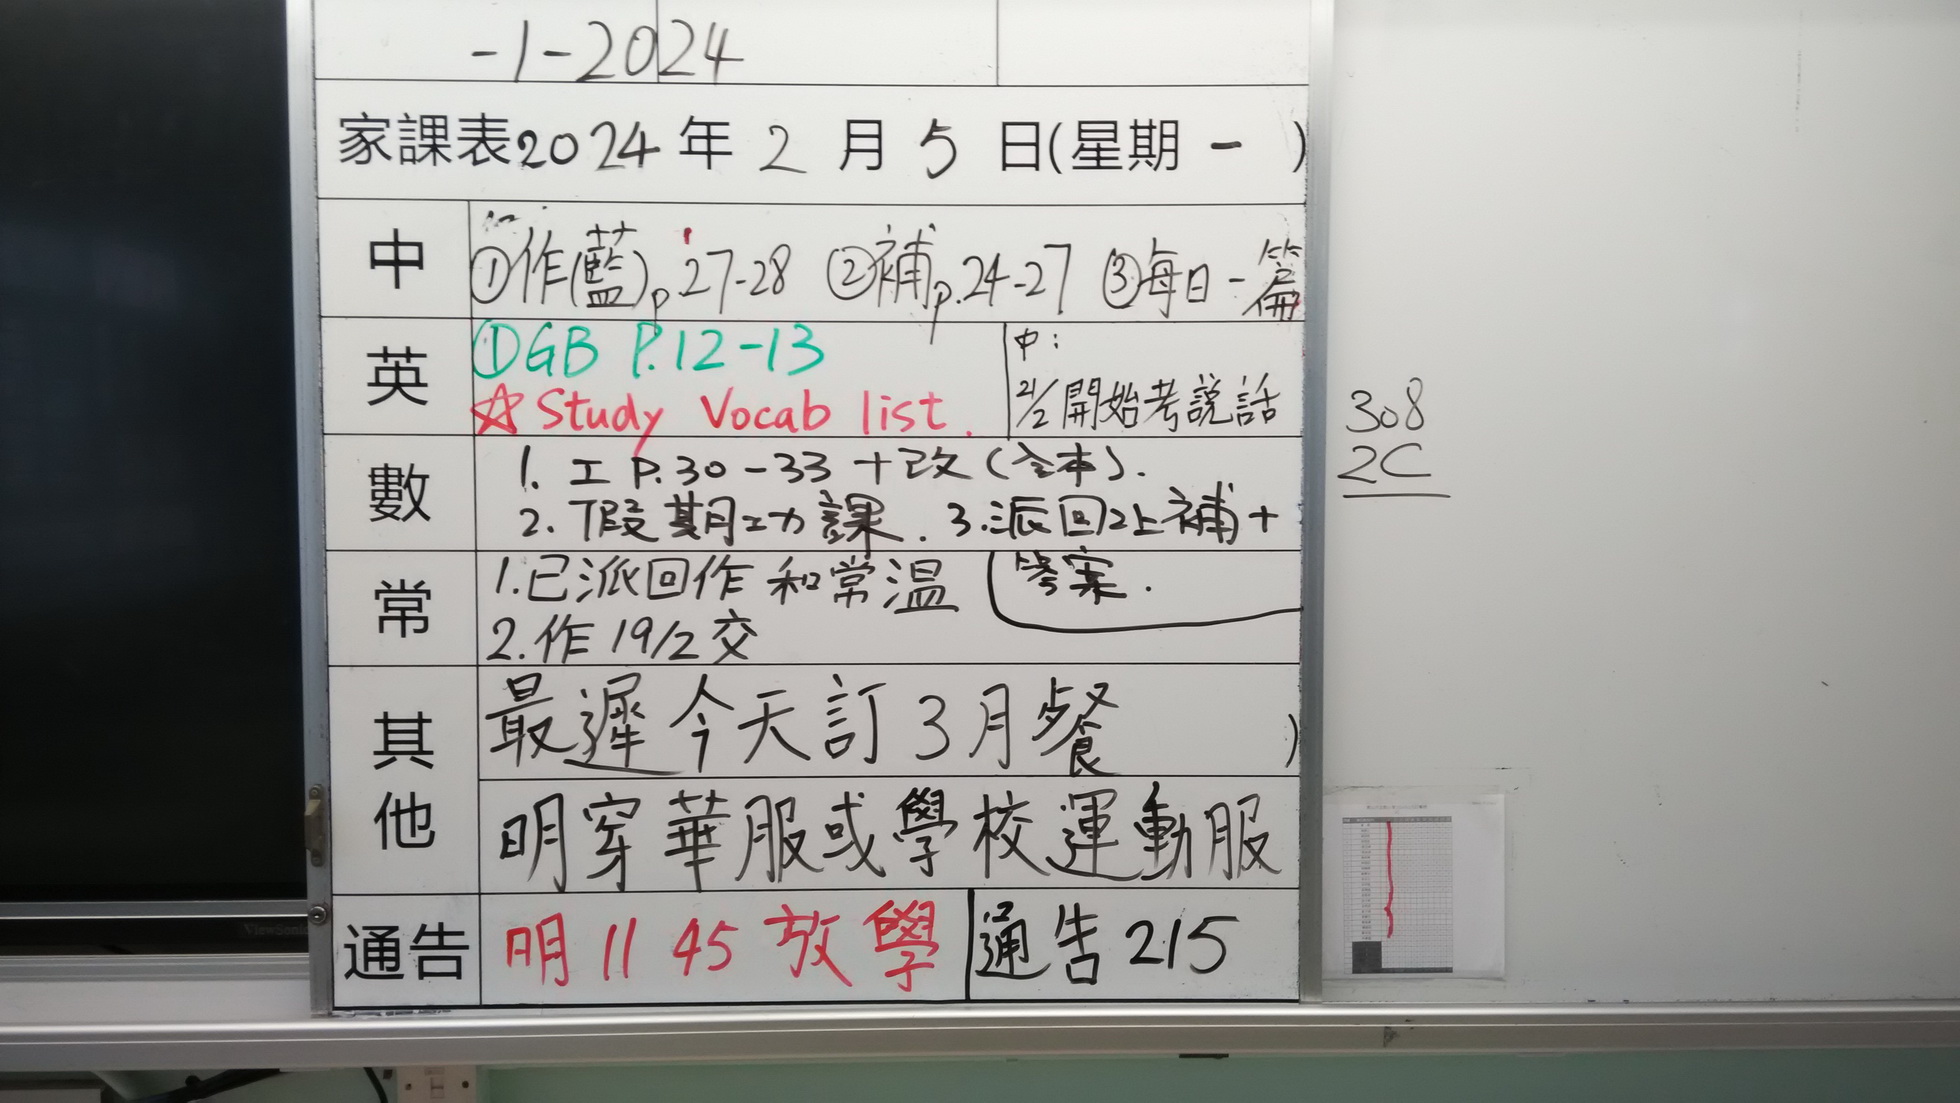 -1-2024
家課表2024年2月5日(星期一)
中
①作(藍)p.27-28 ②補p.24-27 ③每日一篇
英
①GB P.12-13
☆Study Vocab list.
中:
21/2開始考説話
數
1. 工 P.30-33 +改(全本).
2. 假期功課. 3.派回2上補+
答案.
常
1.已派回作和常温
2.作19/2交
其他
最遲今天訂3月餐
)
明穿華服或學校運動服
通告
明11 45放學
通告215
308
2C
ViewSonic